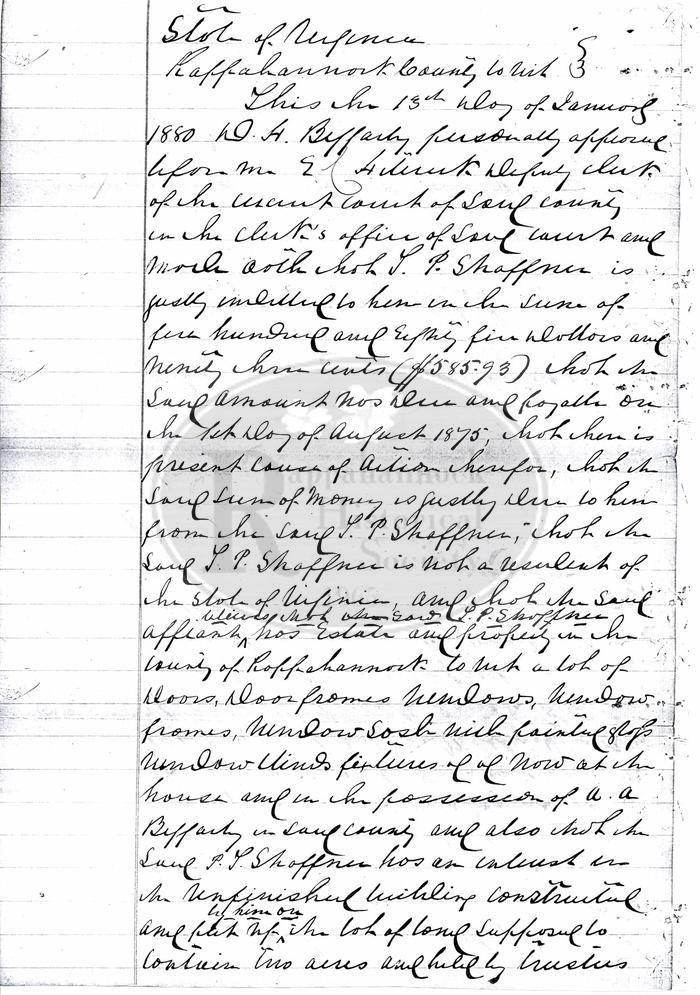 State of Virginia
Rappahannock County to wit
This the 13th Day of January
1880 personally appeared
before me E Deputy clerk
of the circuit court of Said county
in the clerk's office of Said court and
made oath that P. Shaffner is
justly indebted to him in the sum of
five hundred and Eighty five Dollars and
ninety three cents ($585.93) that the
Said amount was Due and payable on
the 1st Day of August 1875, that there is
present cause of Action therefor, that the
Said Sum of Money is justly Due to him
from the said P. Shaffner, that the
Said P. Shaffner is not a resident of
the state of Virginia, and that the said
believes that the said P. Shaffner
affiant, has Estate and property in the
county of Rappahannock to wit a lot of
Doors, Door frames Windows, Window
frames, Window Sash with painted glass
Window blinds fixtures &c &c Now at the
house and in the possession of A. A
in said county and also that the
Said Shaffner has an interest in
the Unfinished building constructed
by him on
and put up, the lot of land supposed to
contain two acres and held by trustees
Rappahannock
Historical
Society